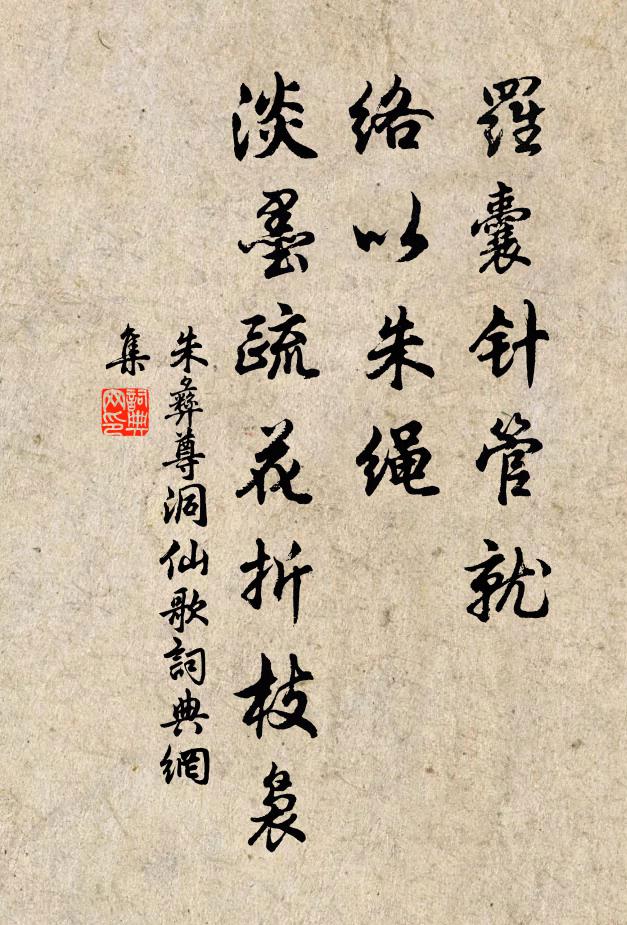 羅囊针管就
络以朱绳
淡墨疏花折枝袅
朱彝尊洞仙歌詞典網
集
詞典
网印